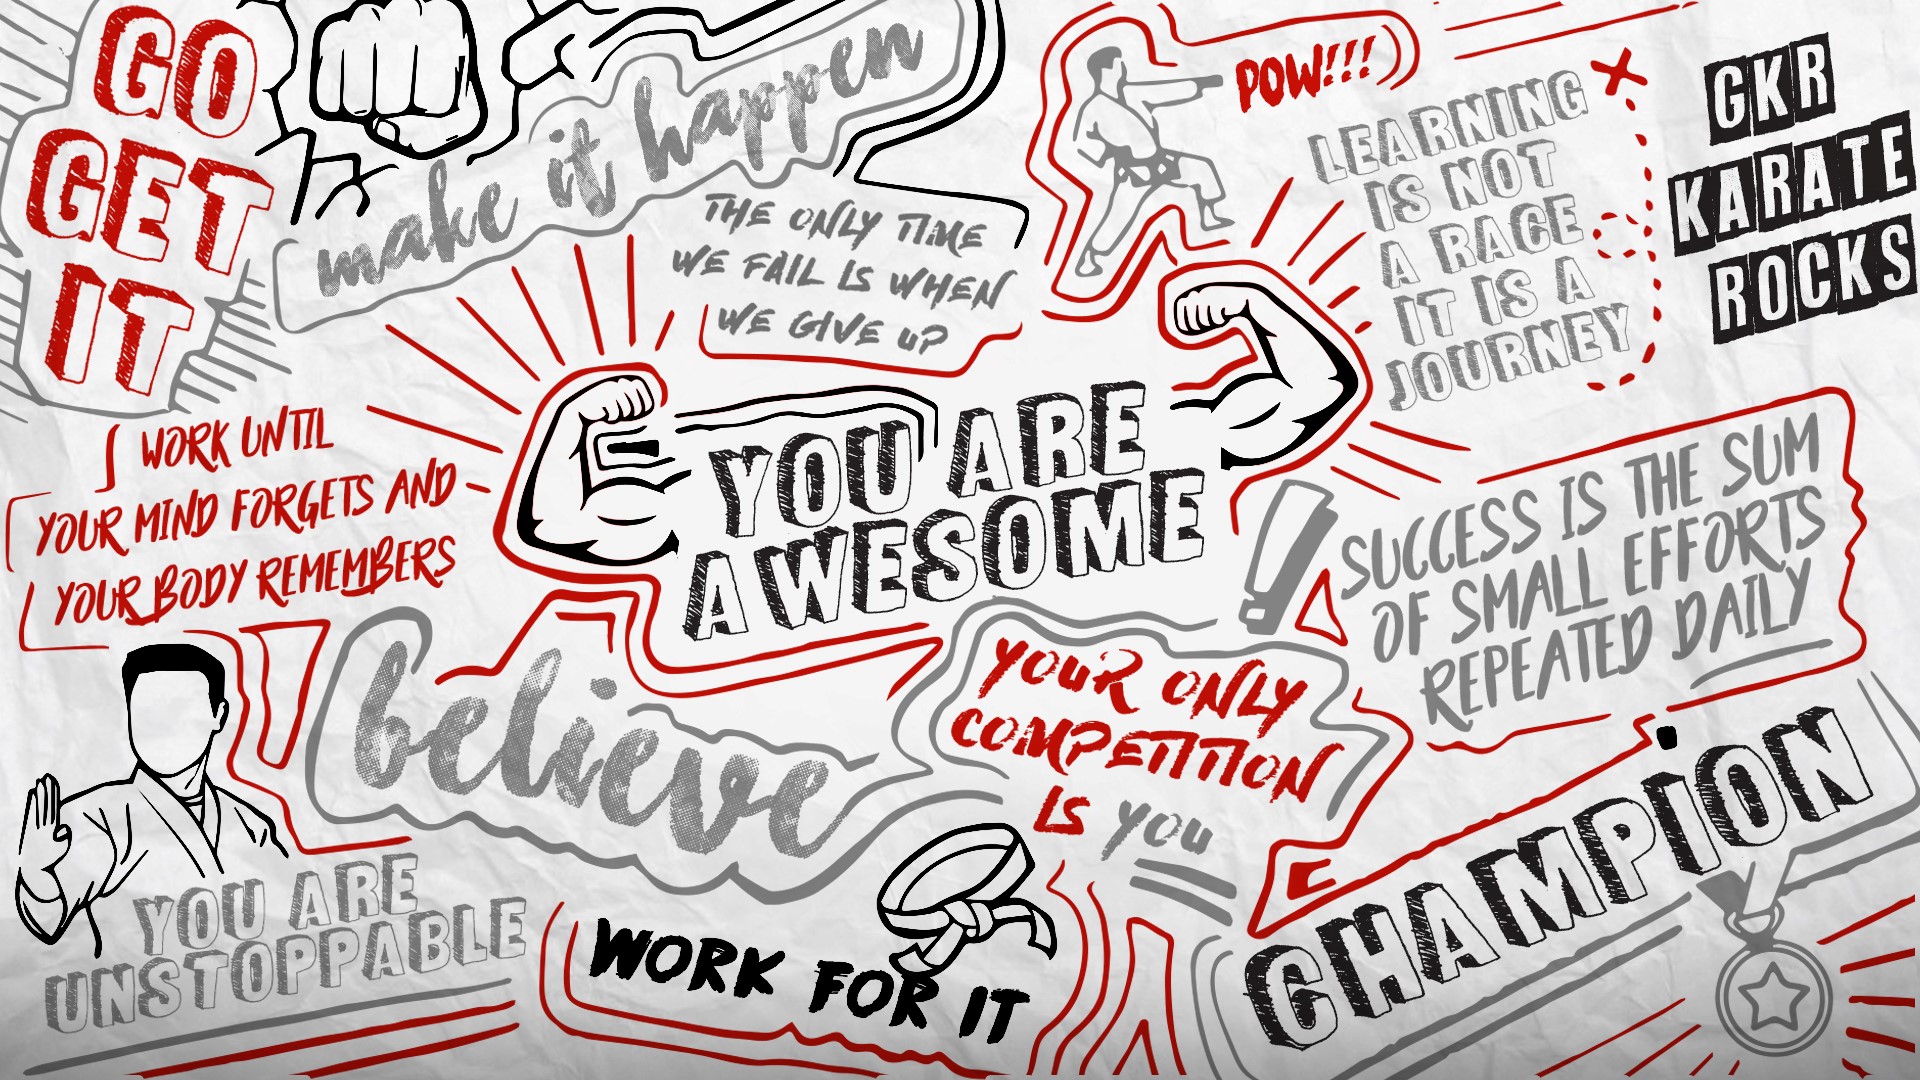 GO
GET
IT
make it happen
THE ONLY TIME
WE FAIL IS WHEN
WE GIVE UP
POW!!!
LEARNING
IS NOT
A RACE
IT IS A
JOURNEY
GKR
KARATE
ROCKS
WORK UNTIL
YOUR MIND FORGETS AND
YOUR BODY REMEMBERS
YOU ARE
AWESOME
!
SUCCESS IS THE SUM
OF SMALL EFFORTS
REPEATED DAILY
believe
YOUR ONLY
COMPETITION
IS YOU
CHAMPION
YOU ARE
UNSTOPPABLE
WORK FOR IT